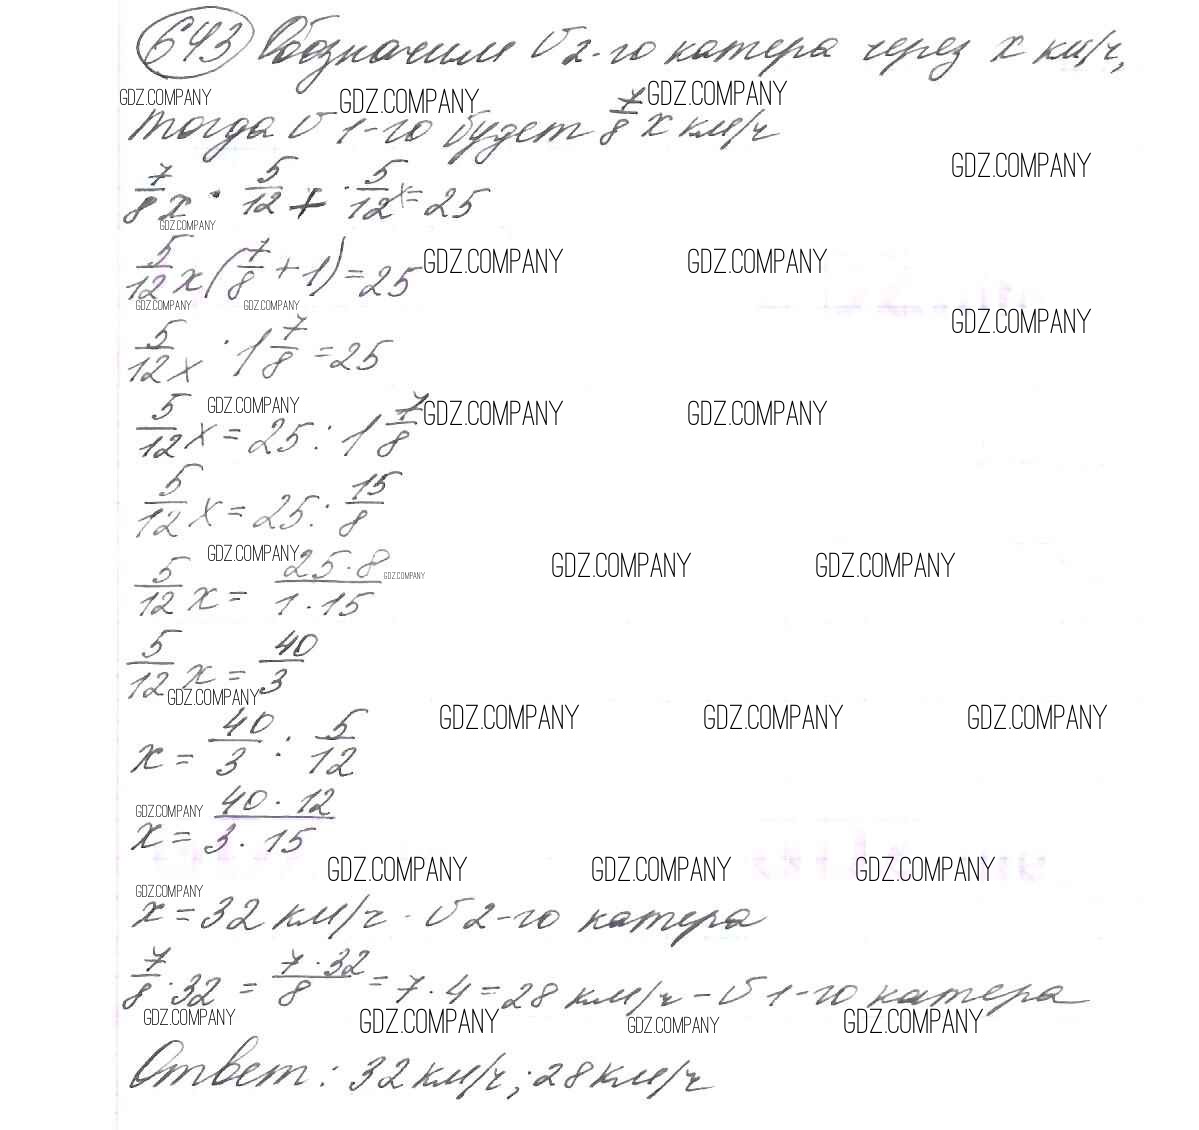 643 Обозначим V 2-го катера через x км/ч,
GDZ.COMPANY GDZ.COMPANY GDZ.COMPANY
тогда V 1-го будет 7/8 x км/ч
GDZ.COMPANY
7/8 x · 5/12 + · 5/12 x = 25
GDZ.COMPANY
5/12 x (7/8 + 1) = 25 GDZ.COMPANY GDZ.COMPANY
GDZ.COMPANY GDZ.COMPANY GDZ.COMPANY
5/12 x · 1 7/8 = 25
GDZ.COMPANY GDZ.COMPANY GDZ.COMPANY
5/12 x = 25 : 1 7/8
5/12 x = 25 : 15/8
GDZ.COMPANY GDZ.COMPANY GDZ.COMPANY GDZ.COMPANY
5/12 x = 25 · 8 / 1 · 15
5/12 x = 40/3
GDZ.COMPANY GDZ.COMPANY GDZ.COMPANY GDZ.COMPANY
x = 40/3 : 5/12
GDZ.COMPANY
x = 40 · 12 / 3 · 15
GDZ.COMPANY GDZ.COMPANY GDZ.COMPANY
GDZ.COMPANY
x = 32 км/ч - V 2-го катера
7/8 · 32 = 7 · 32 / 8 = 7 · 4 = 28 км/ч – V 1-го катера
GDZ.COMPANY GDZ.COMPANY GDZ.COMPANY GDZ.COMPANY
Ответ: 32 км/ч; 28 км/ч